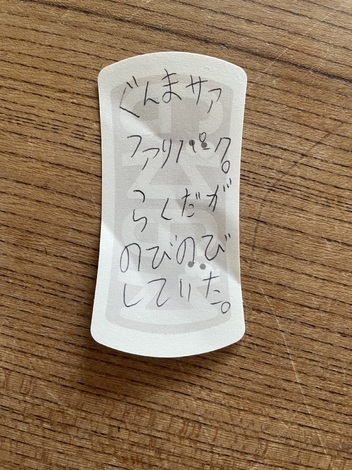 ぐんまサァ
ファリパーク。
らくだが
のびのび
していた。